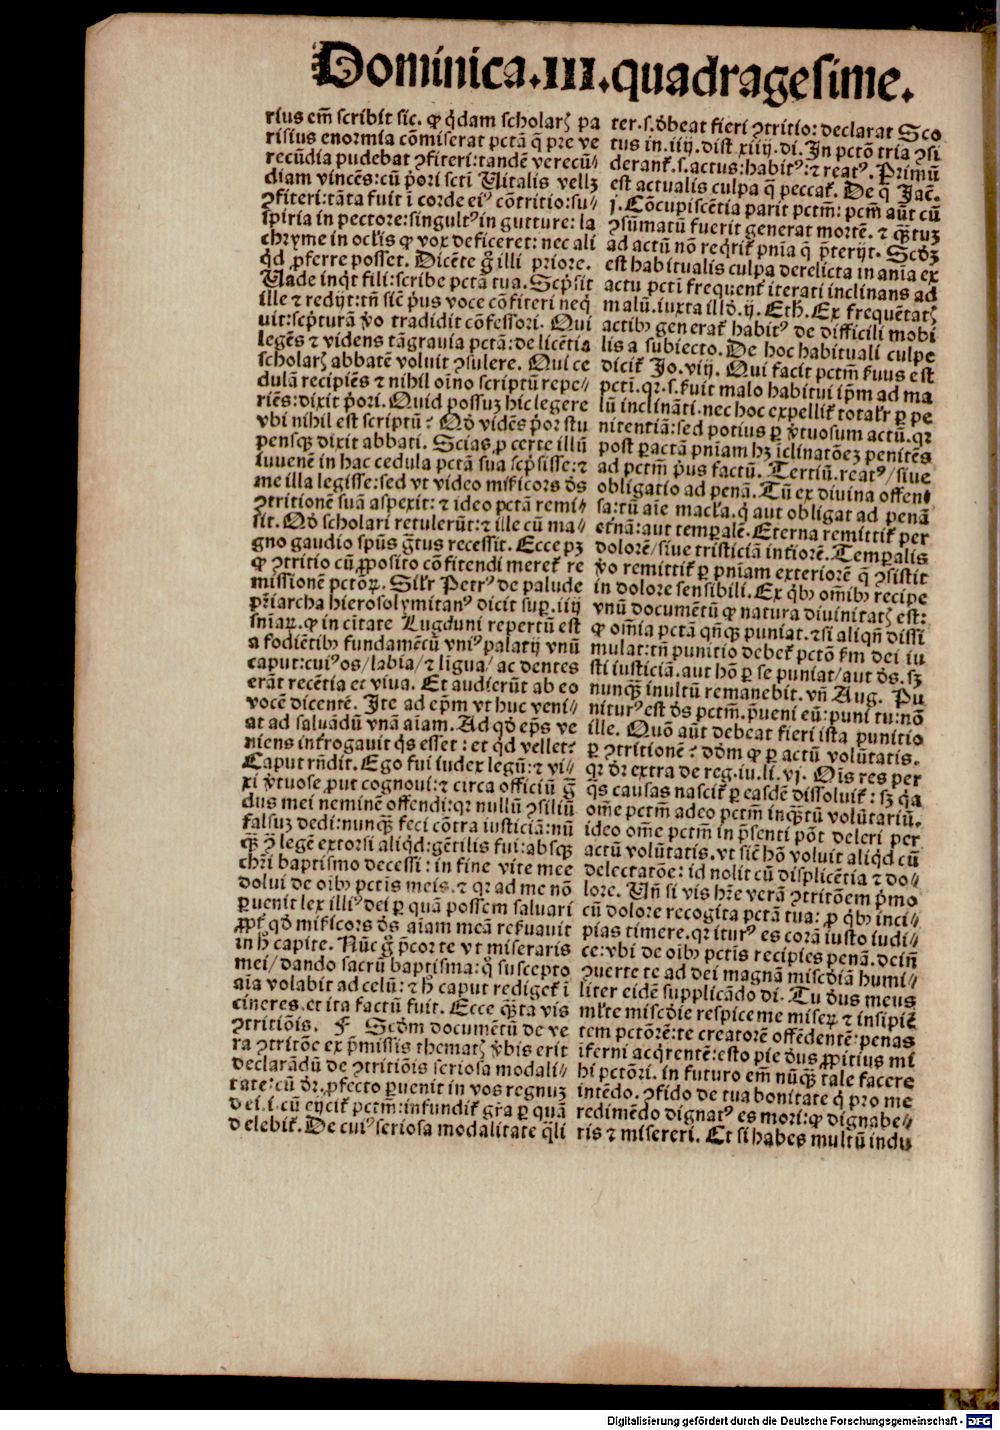 Dominica.III.quadragesime.
rius em̄ scribit sic. ꝙ q̇dam scholarꝫ pa
risius enormia cōmiserat pctā q̄ pre ve
recūdia pudebat ꝯfiteri:tandē verecū⸗
diam vincēs:cū p̄ori scti Uitalis vellꝫ
ꝯfiteri:tāta fuit ī corde ei⁹ cōtritio:su⸗
spiria in pectore:singult⁹ in gutture: la
chryme in oclis ꝙ vox deficeret: nec ali
qͥd ꝓferre posset. Dicēte g̊ illi priore.
Uade inqͥt fili:scribe pctā tua. Scpͥsit
ille ⁊ redijt:tn̄ sic̄ pͥus voce cōfiteri neq̇
uit:scpͥturā ꝟo tradidit cōfessori. Qui
legēs ⁊ videns tā grauia pctā:de licētia
scholarꝫ abbatē voluit ꝯsulere. Qui ce
dulā recipiēs ⁊ nihil oīno scriptū repe⸗
riēs:dixit p̄ori. Quid possuꝫ hic legere
vbi nihil est scriptū? Qḋ vidēs p̄or stu
pensqꝫ dixit abbati. Scias ꝓ certe illū
iuuenē in hac cedula pctā sua scpͥsisse:⁊
me illa legisse:sed vt video misꝛicors dn̄s
ꝯtritionē suā aspexit: ⁊ ideo pctā remi⸗
sit. Qḋ scholari retulerūt:⁊ ille cū ma⸗
gno gaudio spūs grātus recessit. Ecce pꝫ
ꝙ ꝯtritio cū ꝓposito cōfitendi meret̄ re
missionē pctōꝝ. Silr Petr⁹ de palude
pr̄iarcha hierosolymitan⁹ dicit suꝑ.iiij
sniaꝝ. ꝙ in cītate Lugduni repertū est
a fodiētibꝫ fundamētū vni⁹ palatij vnū
caput:cui⁹ os/labia/⁊ līgua/ ac dentes
erāt recētia et viua. Et audierūt ab eo
vocē dicentē. Ite ad ep̄m vt huc veni⸗
at ad saluādū vnā aīam. Ad qḋ ep̄s ve
niens int̄rogauit qͥs esset : et qͥd vellet?
Caput rn̄dit. Ego fui iudex legū:⁊ vi⸗
xi ꝟtuose ꝓut cognoui:⁊ circa officiū g̃
dus mei neminē offendi:qꝛ nullū ꝯsiliū
falsuꝫ dedi:nunqꝫ feci cōtra iusticiā:nū
qꝫ ꝯ̄ legē extorsi aliqͥd:gētilis fui:absqꝫ
chr̄i baptismo decessi : in fine vite mee
dolui de oibꝫ pctīs meis.⁊ qꝛ ad me nō
ꝑuenit lex illi⁹ dei ꝑ quā possem saluari
ꝓpt̄ qḋ misꝛicors dn̄s aīam meā reſuauit
in ħ capite. Nūc g̊ p̄cor te vt miseraris
mei/dando sacrū baptisma:q̊ suscepto
aīa volabit ad celū:⁊ ħ caput rediget̄ ī
cineres.et ita factū fuit. Ecce qꝫta vis
ꝯtritiōis. F Scḋm documētū de ve
ra ꝯtritōe ex p̄missis thematꝫ ꝟbis erit
declarādū de ꝯtritiōis seriosa modali⸗
tate:cū dr̄.ꝓfecto ꝑuenit in vos regnuꝫ
dei.i.cū eijcit̄ pctm̄:infundit̄ gr̄a ꝑ quā
delebit̄. De cui⁹ seriosa modalitate q̄li
ter.s.ḋbeat fieri ꝯtritio: declarat Sco
tus in.iiij.dist.xiiij.di.In pctō tria ꝯsi
derant̄.s.actus:habit⁹:⁊ reat⁹. Primū
est actualis culpa q̄ peccat̄. De q̄ Jac̄.
j.Cōcupiscētia parit pctm̄: pcm̄ aūt cū
ꝯsūmatū fuerit generat mortē. ⁊ qꝫ tuꝫ
ad actū nō reqͥrit̄ pn̄ia q̄ p̄terijt. Scḋꝫ
est habitualis culpa derelicta in aīa ex
actu pcti frequent̄ iterati inclinans ad
malū.iuxta illḋ.ij. Eth. Ex frequētatꝫ
actibꝫ generat̄ habit⁹ de difficili mobi
lis a subiecto. De hoc habituali culpe
dicit̄ Jo.viij. Qui facit pctm̄ seruus est
pcti.qꝛ.s.seruit malo habitui ip̄m ad ma
lū inclināti.nec hoc expellit̄ totalr ꝑ pe
nitentiā:sed potius ꝑ ꝟtuosum actū.qꝛ
post ꝑactā pn̄iam hꝫ īclinatōeꝫ penitēs
ad pctm̄ pͥus factū. Tertiū.reat⁹/siue
obligatio ad penā. Tū ex diuina offen⸗
sa:tū aīe macla.q̇ aut obligat ad penā
et̄nā:aut temꝑalē. Eterna remittit̄ per
dolorē/siue tristiciā int̄iorē. Temꝑalis
ꝟo remittit̄ ꝑ pn̄iam exteriorē q̄ ꝯsistit
in dolore sensibili. Ex qͥbꝫ om̄ibꝫ recipe
vnū documētū ꝙ natura diuinitatꝫ est:
ꝙ om̄ia pctā qn̄qꝫ puniat.⁊ si aliqn̄ dissi
mulat:tn̄ punitio debet̄ pctō ſm dei iu
sti iusticiā.aut hō ꝑ se puniat/aut dn̄s.sꝫ
nunqꝫ inultū remanebit.vn̄ Aug. Pu
nitur⁹ est dn̄s pctm̄.p̄ueni eū:puni tu:nō
ille. Quō aūt debeat fieri ista punitio
ꝑ ꝯtritionē? dḋm ꝙ ꝑ actū volūtatis.
qꝛ dr̄ extra de reg.iu.li.vj. Oīs res per
qͣs causas nascit̄ ꝑ easdē dissoluit̄: sꝫ qͥa
om̄e pctm̄ adeo pctm̄ inqꝫtū volūtariū.
ideo om̄e pctm̄ in p̄senti pōt deleri per
actū volūtatis.vt sic̄ hō voluit aliqͥd cū
delectatōe: id nolit cū displicētia ⁊ do⸗
lore. Un̄ si vis hr̄e verā ꝯtritōem pͥmo
cū dolore recogita pctā tua: ꝓ qͥbꝫ inci⸗
pias timere.qꝛ itur⁹ es corā iusto iudi⸗
ce:vbi de oibꝫ pctīs recipies penā.dein̄
ꝯuerte te ad dei magnā miscḋiā humi⸗
liter eidē supplicādo di. Tu dn̄s meus
mlte miscḋie respice me miseꝝ ⁊ insipiē
tem pctōrē:te creatorē offēdentē:penas
iferni acqͥrentē:esto pie dn̄s ꝓpitius mi
hi pctōri. in futuro em̄ nūqꝫ tale facere
intēdo. ꝯfido de tua bonitate q̇ pro me
redimēdo dignat⁹ es mori:ꝙ dignabe⸗
ris ⁊ misereri. Et si habes multū indu
Digitalisierung gefördert durch die Deutsche Forschungsgemeinschaft - DFG